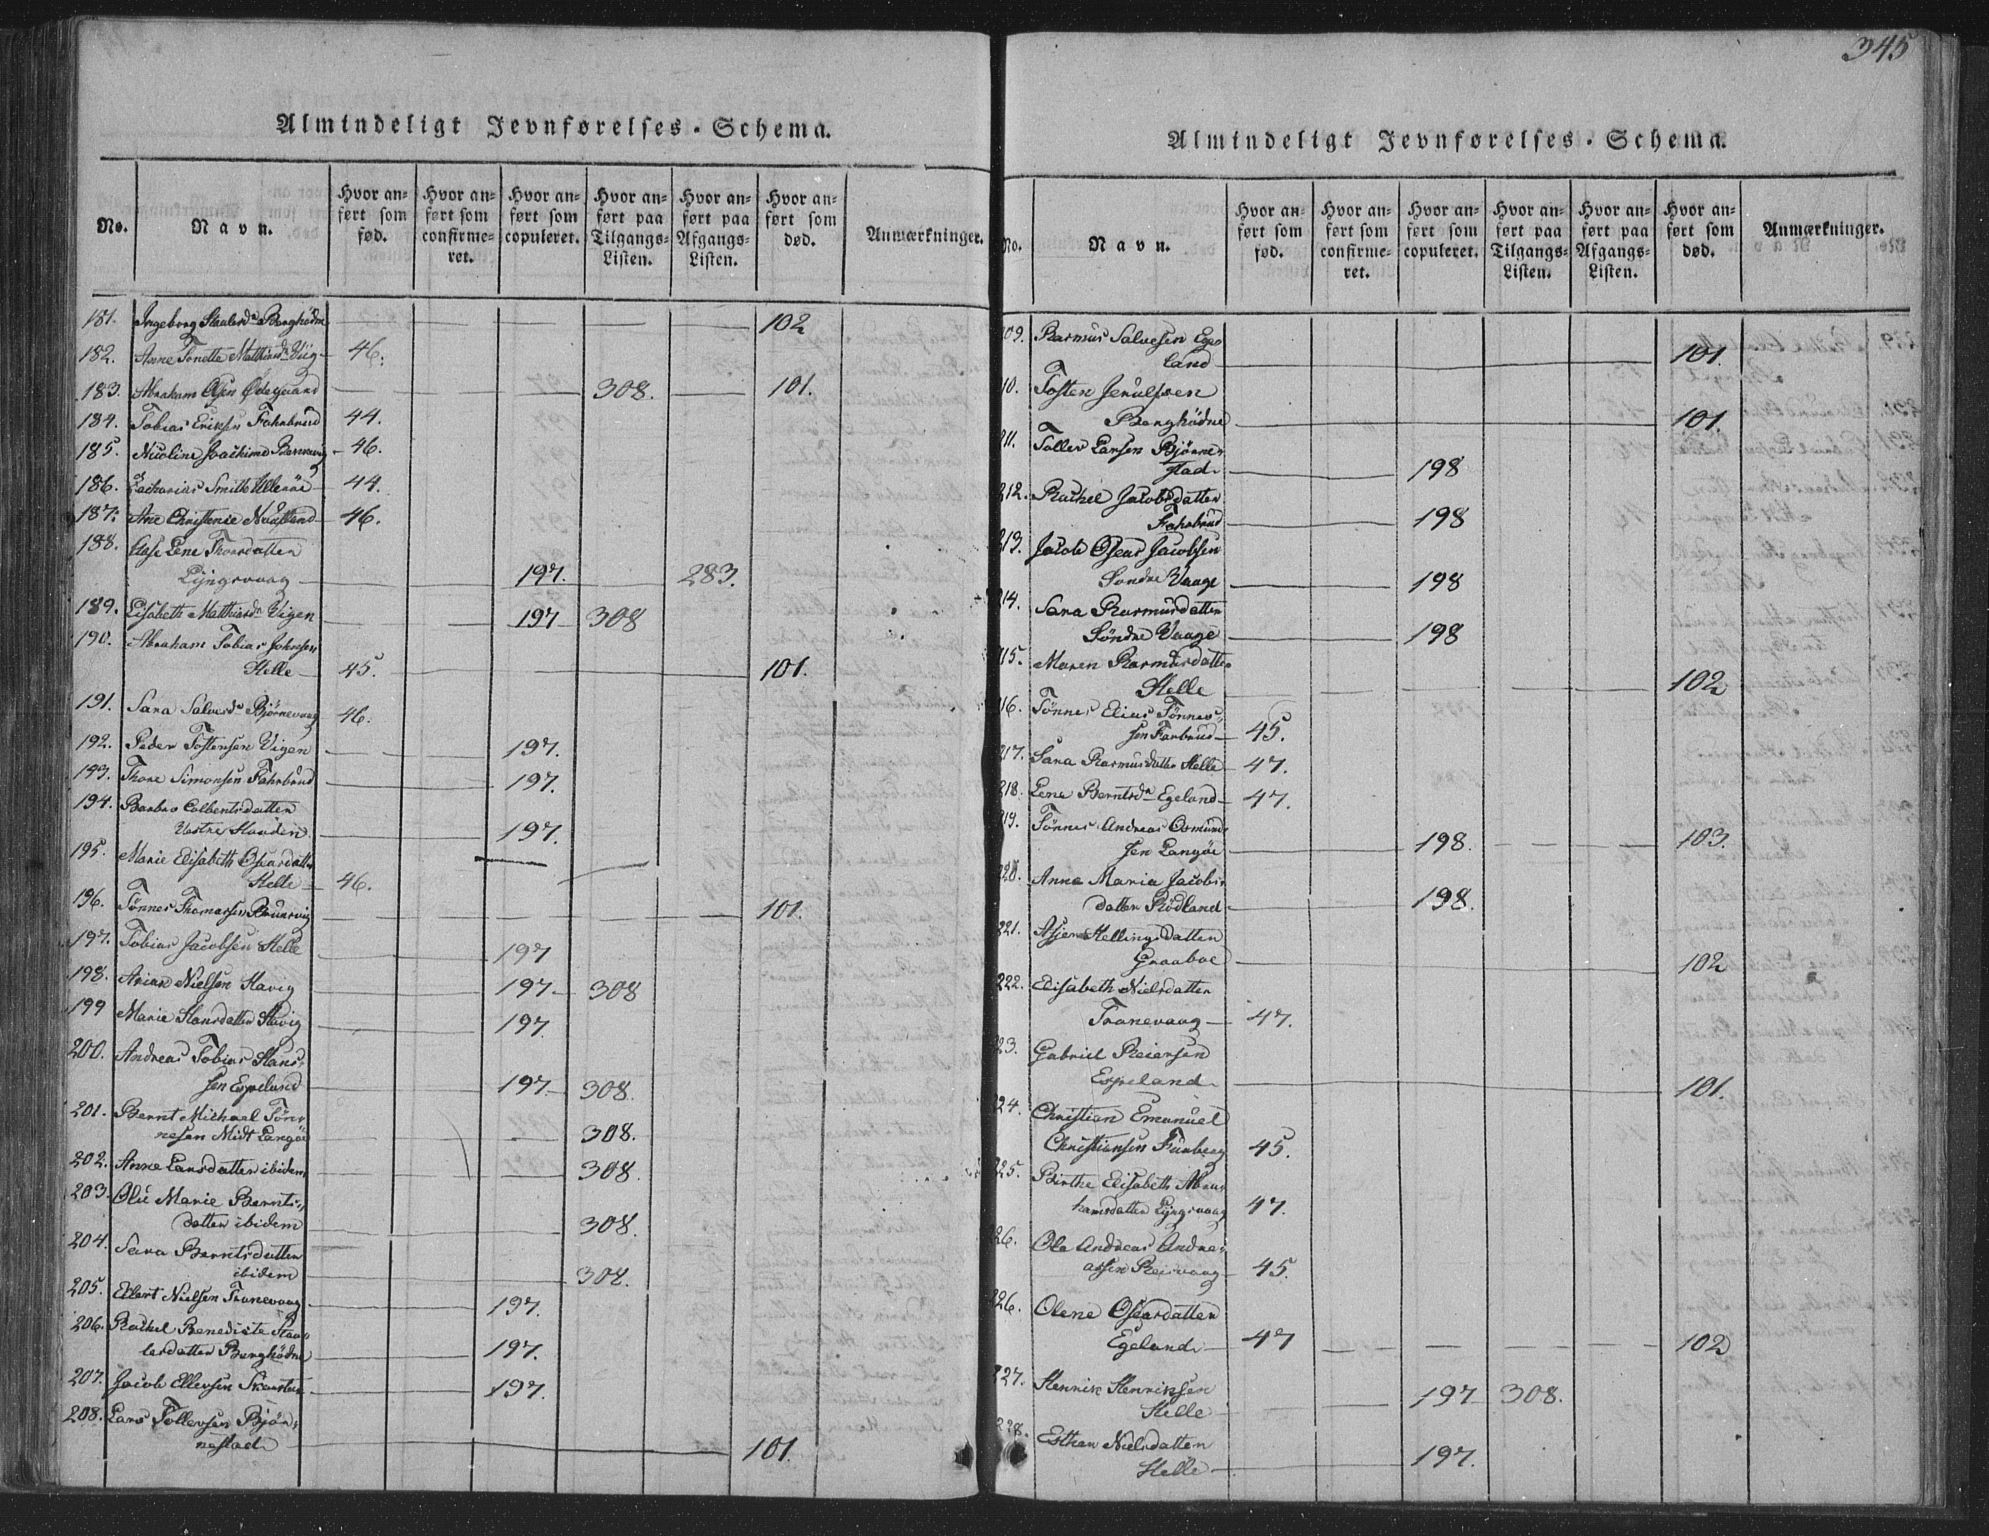 345
Almindeligt Jevnførelses-Schema.
No.
Navn.
Hvor anført som fød.
Hvor anført som confirmeret.
Hvor anført som copuleret.
Hvor anført paa Tilgangs-Listen.
Hvor anført paa Afgangs-Listen.
Hvor anført som død.
Anmærkninger.
181. Ingeborg 102
182. Anne Tonette 46.
183. Abraham Olsen Ødegaard 308. 101.
184. Tobias Eriksen Fahrbrud 44.
185. Nicoline Joachime 46.
186. Zacharias Smith Ulleröe 44.
187. Ane Christense 46.
188. Lene Thorsdatter
Lÿngsvaag 197. 283.
189. Lisabeth Vigen 197 308
190. Abraham Tobias Johnsen
Helle 45. 101.
191. Sara Salvesd. Bjørnevaag 46.
192. Peder Tostensen Vigen 197.
193. Thore Simonsen Fahrbrud 197.
194. Barbro Colbentsdatter
197.
195. Marie Elisabeth Osearsdatter
Helle 46.
196. Tønnes Thomassen 101.
197. Tobias Jacobsen Helle 197
198. Arian Nielsen Havig 197 308
199 Marie Hansdatter Havig 197.
200. Andreas Tobias Hans-
sen Espeland 197. 308.
201. Bernt Michael Tøn-
nesen Midt Langøe 308.
202. Anne Larsdatter ibidem 308.
203. Olie Marie Bernts-
datter ibidem 308.
204. Sara Berntsdatter
ibidem 308.
205. Ellert Nielsen Tronevaag 197.
206. Rachel Benedicte
Berghödne 197.
207. Jacob Ellevsen 197.
208. Lars Tollevsen Bjør-
nestad 101.
Almindeligt Jevnførelses-Schema.
No.
Navn.
Hvor anført som fød.
Hvor anført som confirmeret.
Hvor anført som copuleret.
Hvor anført paa Tilgangs-Listen.
Hvor anført paa Afgangs-Listen.
Hvor anført som død.
Anmærkninger.
09. Rasmus Salvesen Ege-
land 101.
10. Tosten
Berghödne 101.
11. Tollev Larsen Bjørne-
stad 198
212. Rachel Jacobsdatter
Fahrbrud 198
213. Jacob Oseas Jacobsen
Søndre Vaage 198
14. Sara Rasmusdatter
Søndre Vaage 198
15. Maren Rasmusdatter
Helle 102
16. Tønnes Elias Tønnes-
sen Farbrud 45.
217. Sara Rasmusdatter Helle 47.
218. Lene Berntsd. Egeland 47.
19. Tønnes Andreas Osmund-
sen Langøe 198. 103.
220. Anne Maria Jacobs-
datter Rödland 198.
221. Hellingsdatter
Graaboe 102
222. Elisabeth Nielsdatter
Tronevaag 47.
23. Gabriel Reiersen
Espeland 101.
24. Christian Emanuel
Christiansen 45.
225. Birthe Elisabeth Abra-
hamsdatter Lÿngsvaag 47.
26. Ole Andreas Andre-
assen Reisvaag 45.
226. Olene Osearsdatter
Egeland 47 102
227. Henrik Henriksen
Helle 197 308.
228. Esther Nielsdatter
Helle 197.